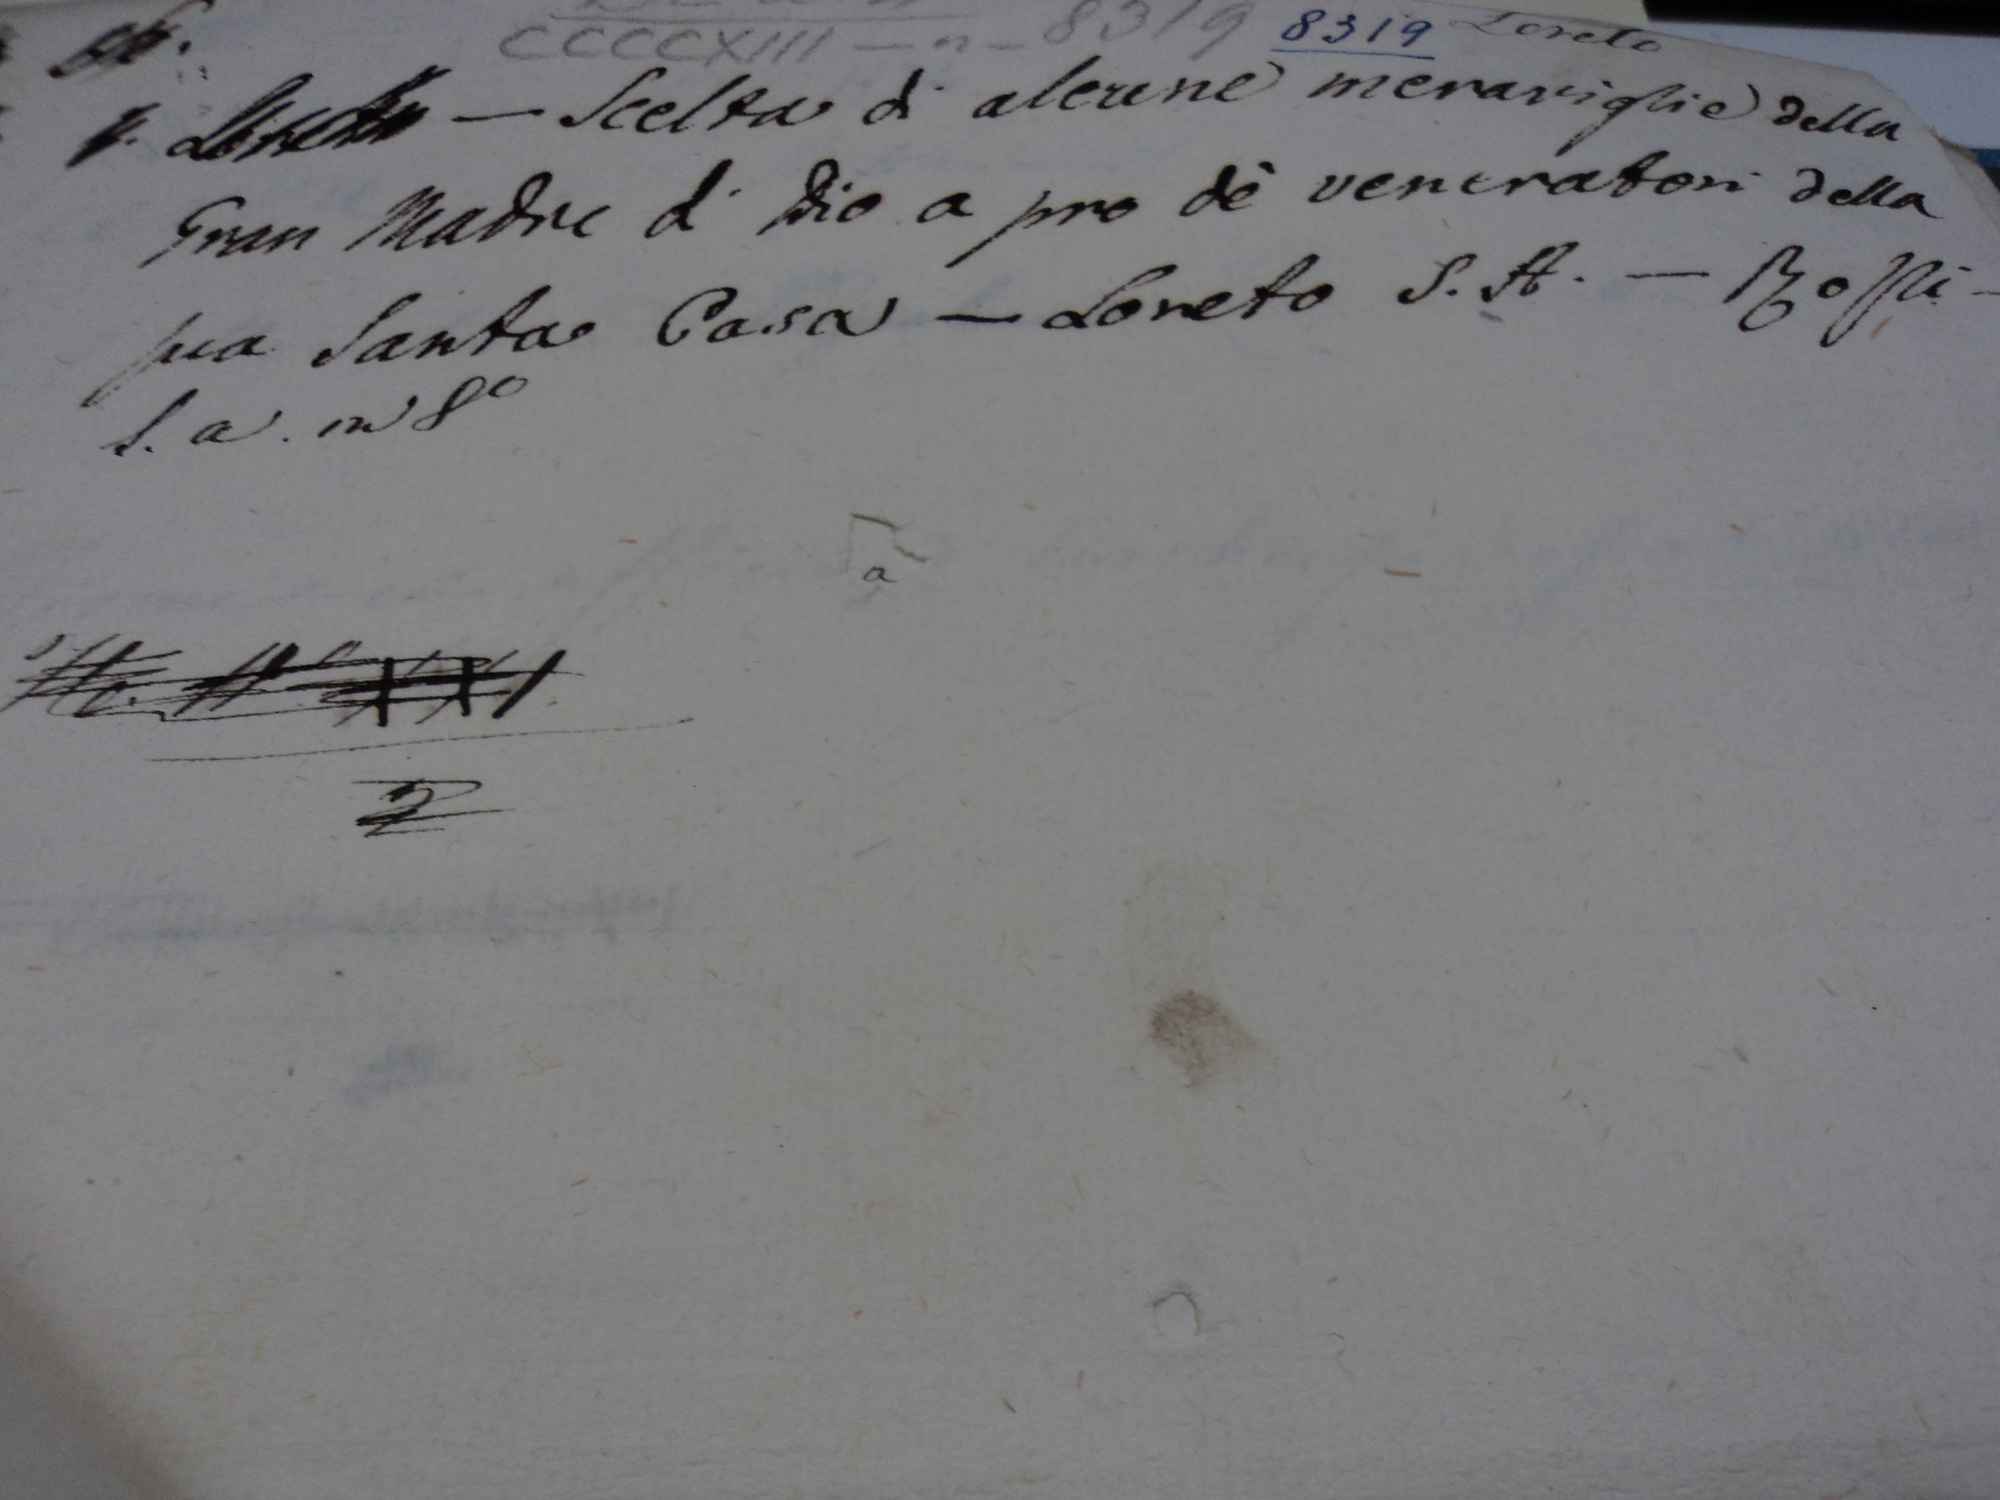 CCCCXIII — n - 8319 8319 Loreto
Loreto — Scelta di alcune meraviglie della
Gran Madre di Dio a pro de' veneratori della
sua Santa Casa — Loreto S. A. — Rossi -
S. a. in 8º
a
2